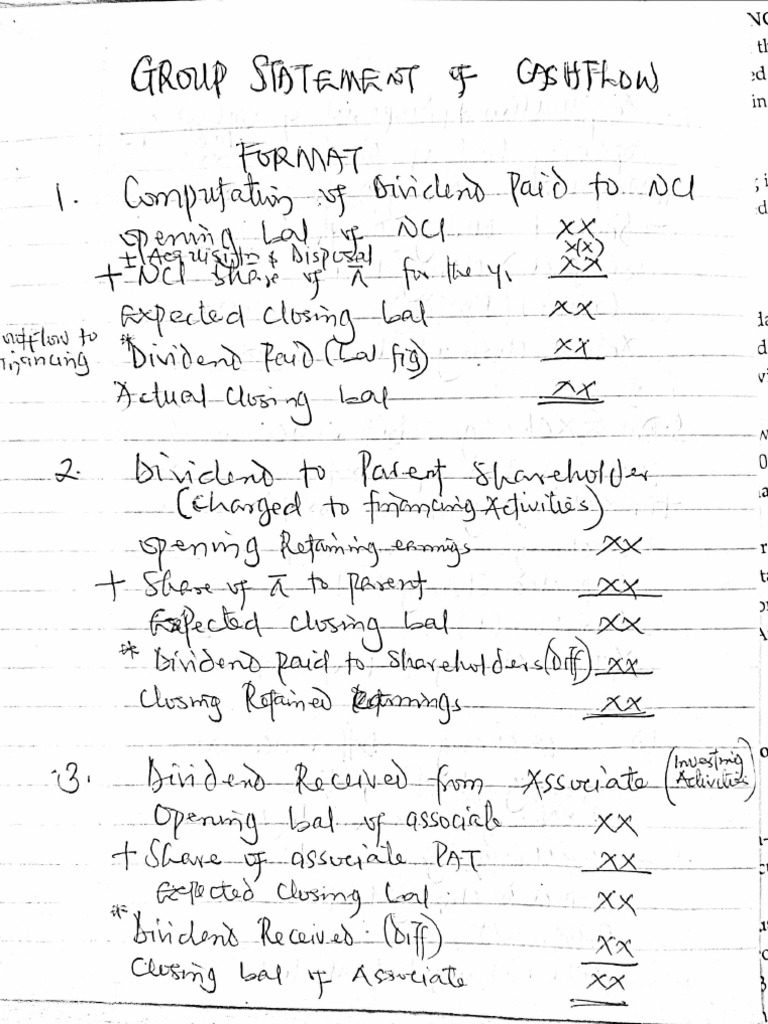 GROUP STATEMENT of CASHFLOW
FORMAT
1. Computation of Dividend Paid to NCI
opening bal of NCI XX
± Acquisitn & Disposal X(X)
+ NCI share of π for the yr XX
Expected closing bal XX
outflow to financing
* Dividend Paid (bal fig) XX
Actual closing bal XX
2. Dividend to Parent Shareholder
(Charged to financing Activities)
opening Retaining earnings XX
+ Share of π to parent XX
Expected closing bal XX
* Dividend paid to shareholders (Diff) XX
Closing Retained earnings XX
3. Dividend Received from Associate (Investing Activities)
Opening bal of associate XX
+ Share of associate PAT XX
Expected closing bal. XX
* Dividend Received (Diff) XX
Closing bal of Associate XX